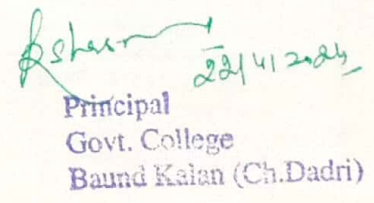 22/4/2024
Principal
Govt. College
Baund Kalan (Ch.Dadri)